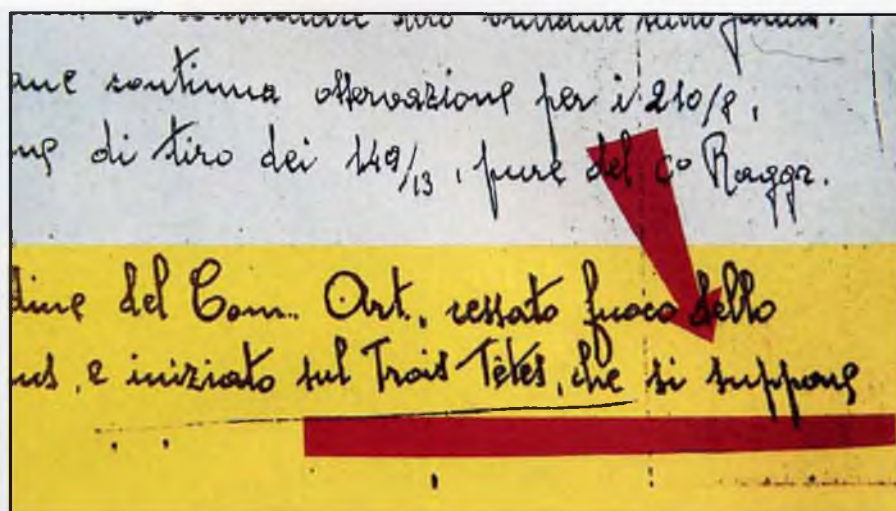 tiro battente sullo
ane continua osservazione per i 210/8,
ne di tiro dei 149/13, pure del C° Raggr.
dine del Com. Art. cessato fuoco dello
us, e iniziato sul Trois Têtes, che si suppone